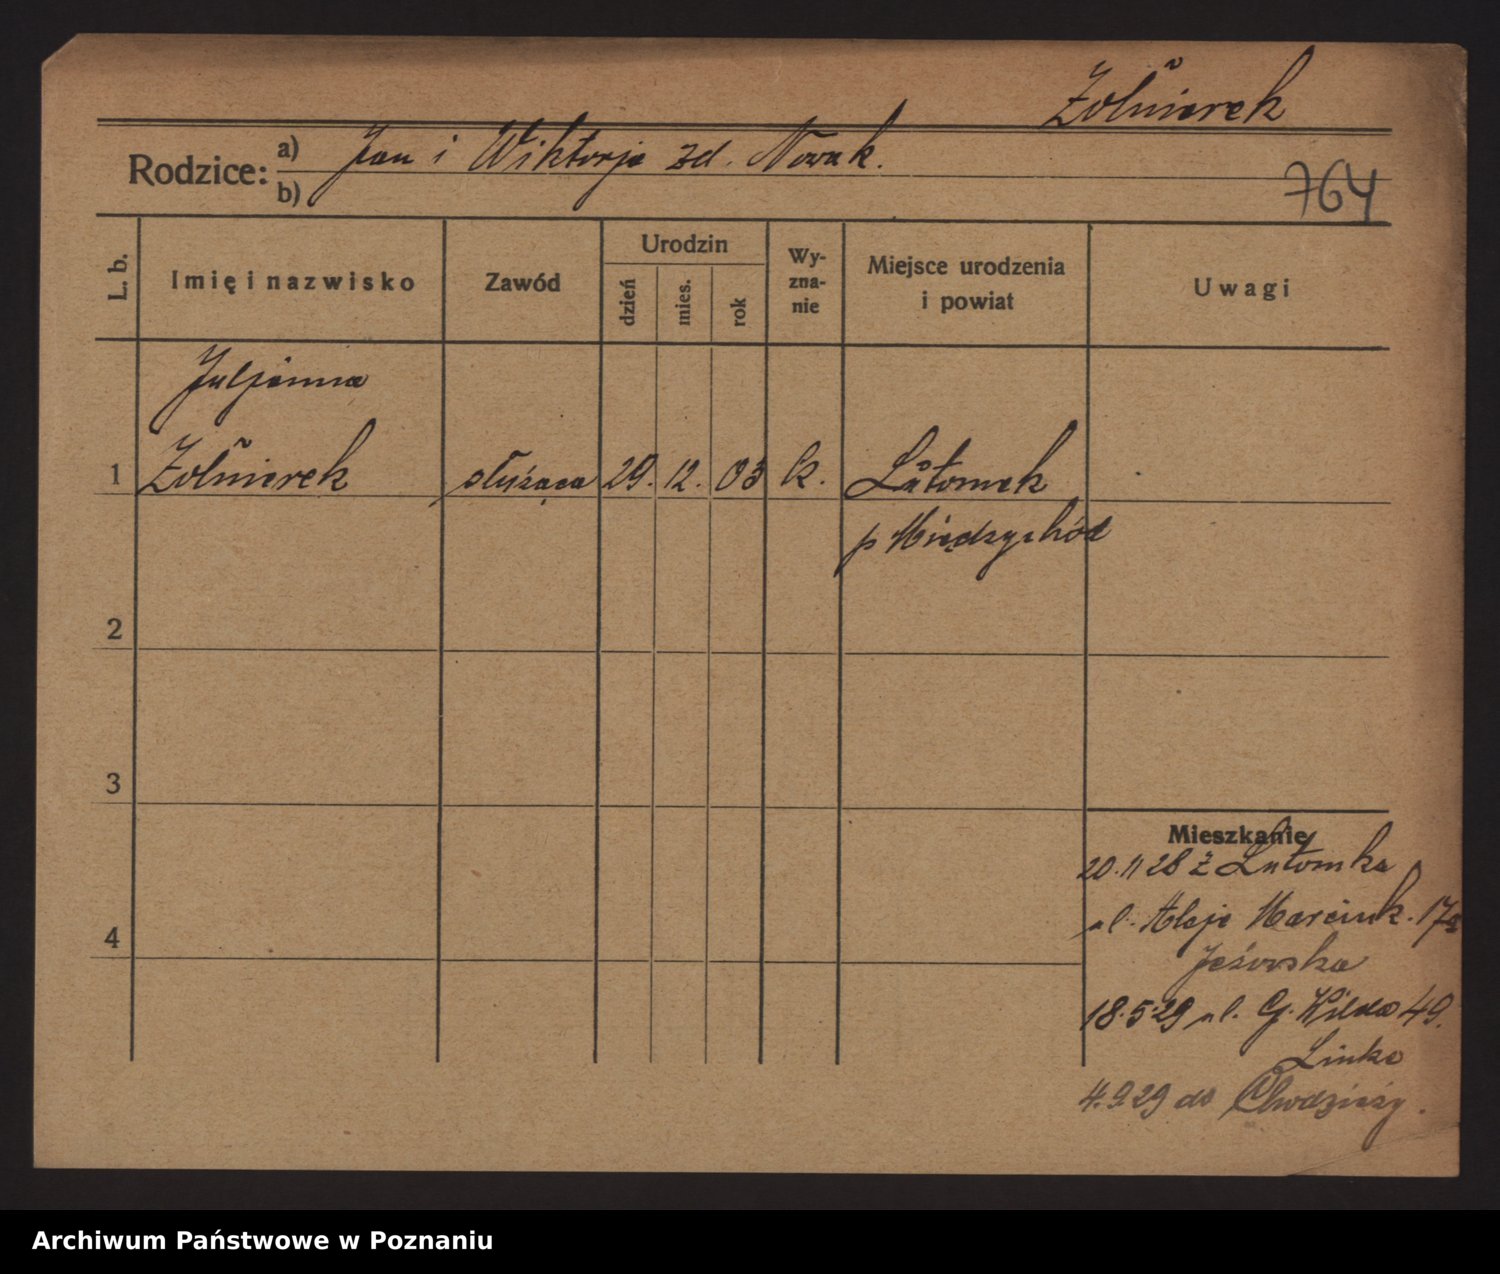 Żołnierek
Rodzice: a) Jan i Wiktorja zd. Nowak.
b)
764
L. b. Imię i nazwisko Zawód Urodzin dzień mies. rok Wy-zna-nie Miejsce urodzenia i powiat Uwagi
Juljanna
1 Żołnierek służąca 29. 12. 03 k. Lutomek
p Międzychód
2
3
Mieszkanie
20.11 28 z Lutomka
4 ul. Aleje Marcink. 17a
Jeżowska
18.5.29 ul. G. Wilda 49.
Linke
4.9.29 do Chodzieży.
Archiwum Państwowe w Poznaniu